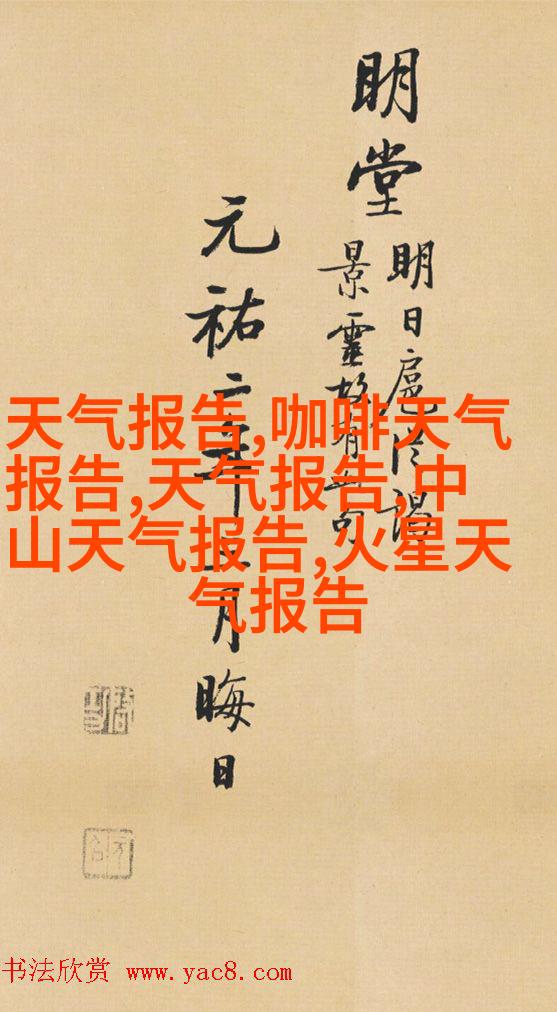 明堂
明日扈從謁
景靈故有此句
元祐二年月晦日
天气报告,咖啡天气
报告,天气报告,中
山天气报告,火星天
气报告
书法欣赏 www.yac8.com